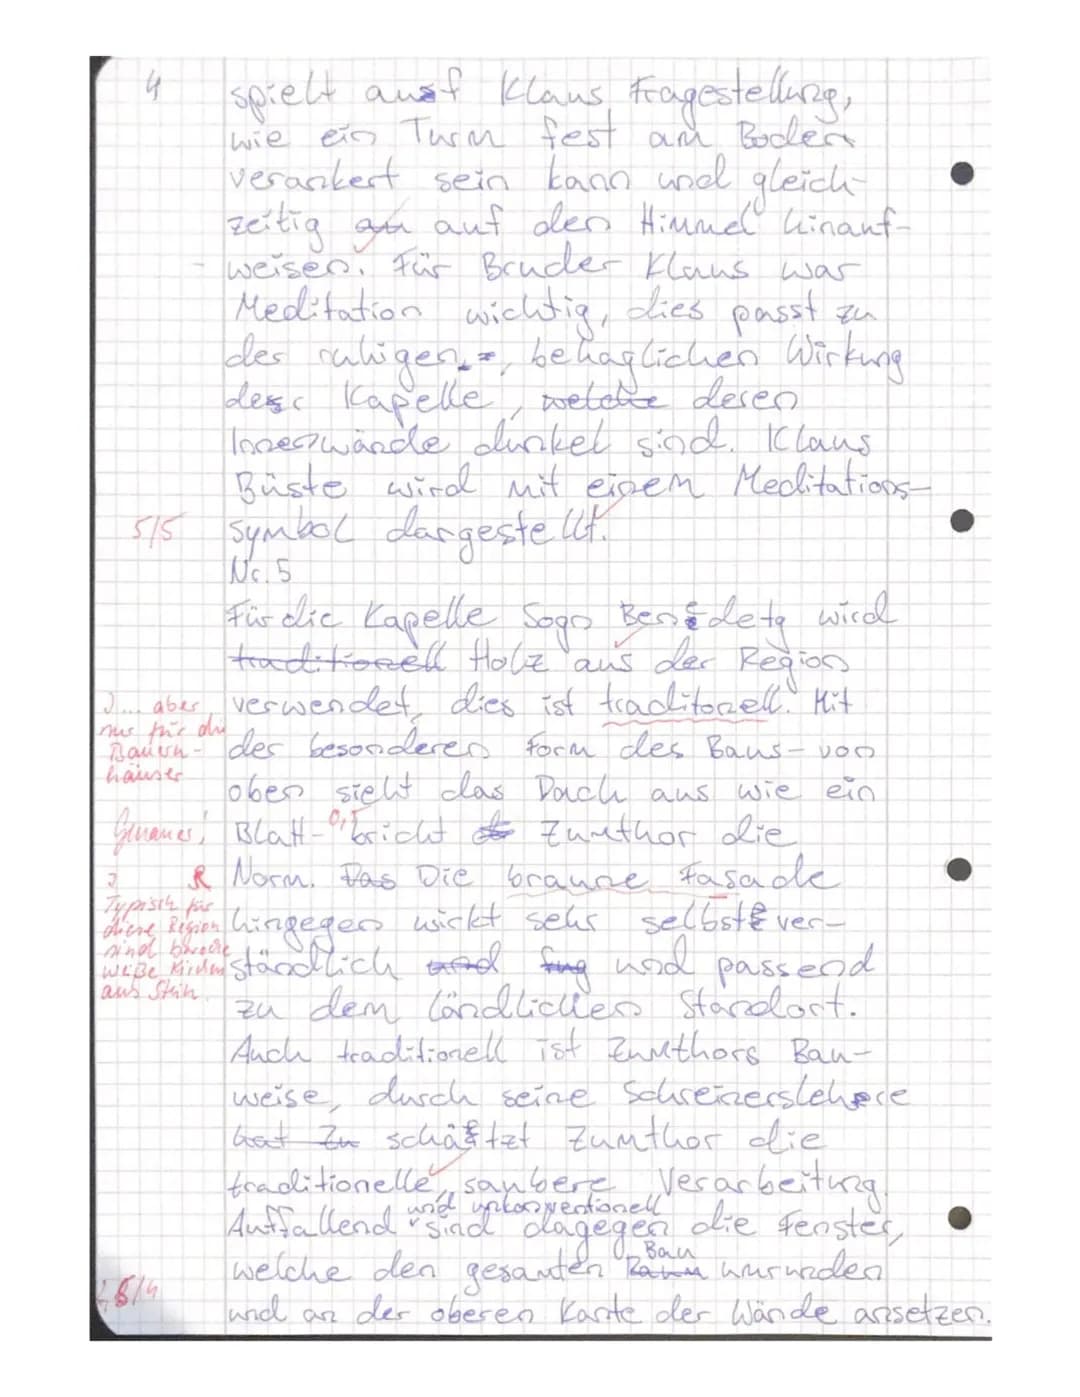 4
spielt auf Klaus Fragestellung,
wie ein Turm fest am Boden
verankert sein kann und gleich-
zeitig an auf den Himmel hinauf-
weisen. Für Bruder Klaus war
Meditation wichtig, dies passt zu
der ruhigen, behaglichen Wirkung
der Kapelle, welche deren
Innenwände dunkel sind. Klaus
Büste wird mit einem Meditations-
5/5 symbol dargestellt.
Nr. 5
Für die Kapelle Sogn Benedetg wird
traditionell Holz aus der Region
verwendet, dies ist traditonell. Mit
... aber
nur für die
Bauern-
häuser
der besonderen Form des Baus- von
oben sieht das Dach aus wie ein
Genauer!
Blatt- 0,5 bricht Zumthor die
R Norm. Das Die braune Fasade
Typisch für
diese Region
sind barocke
weiße Kirchen
aus Stein
hingegen wirkt sehr selbstver-
ständlich und und passend
zu dem ländlichen Standort.
Auch traditionell ist Zumthors Bau-
weise, durch seine Schreinerslehre
hat Zu schätzt Zumthor die
traditionelle, saubere Verarbeitung.
und unkonventionell
Auffallend sind dagegen die Fenster,
Bau
welche den gesamten Raum umrunden
und an der oberen Kante der Wände ansetzen.